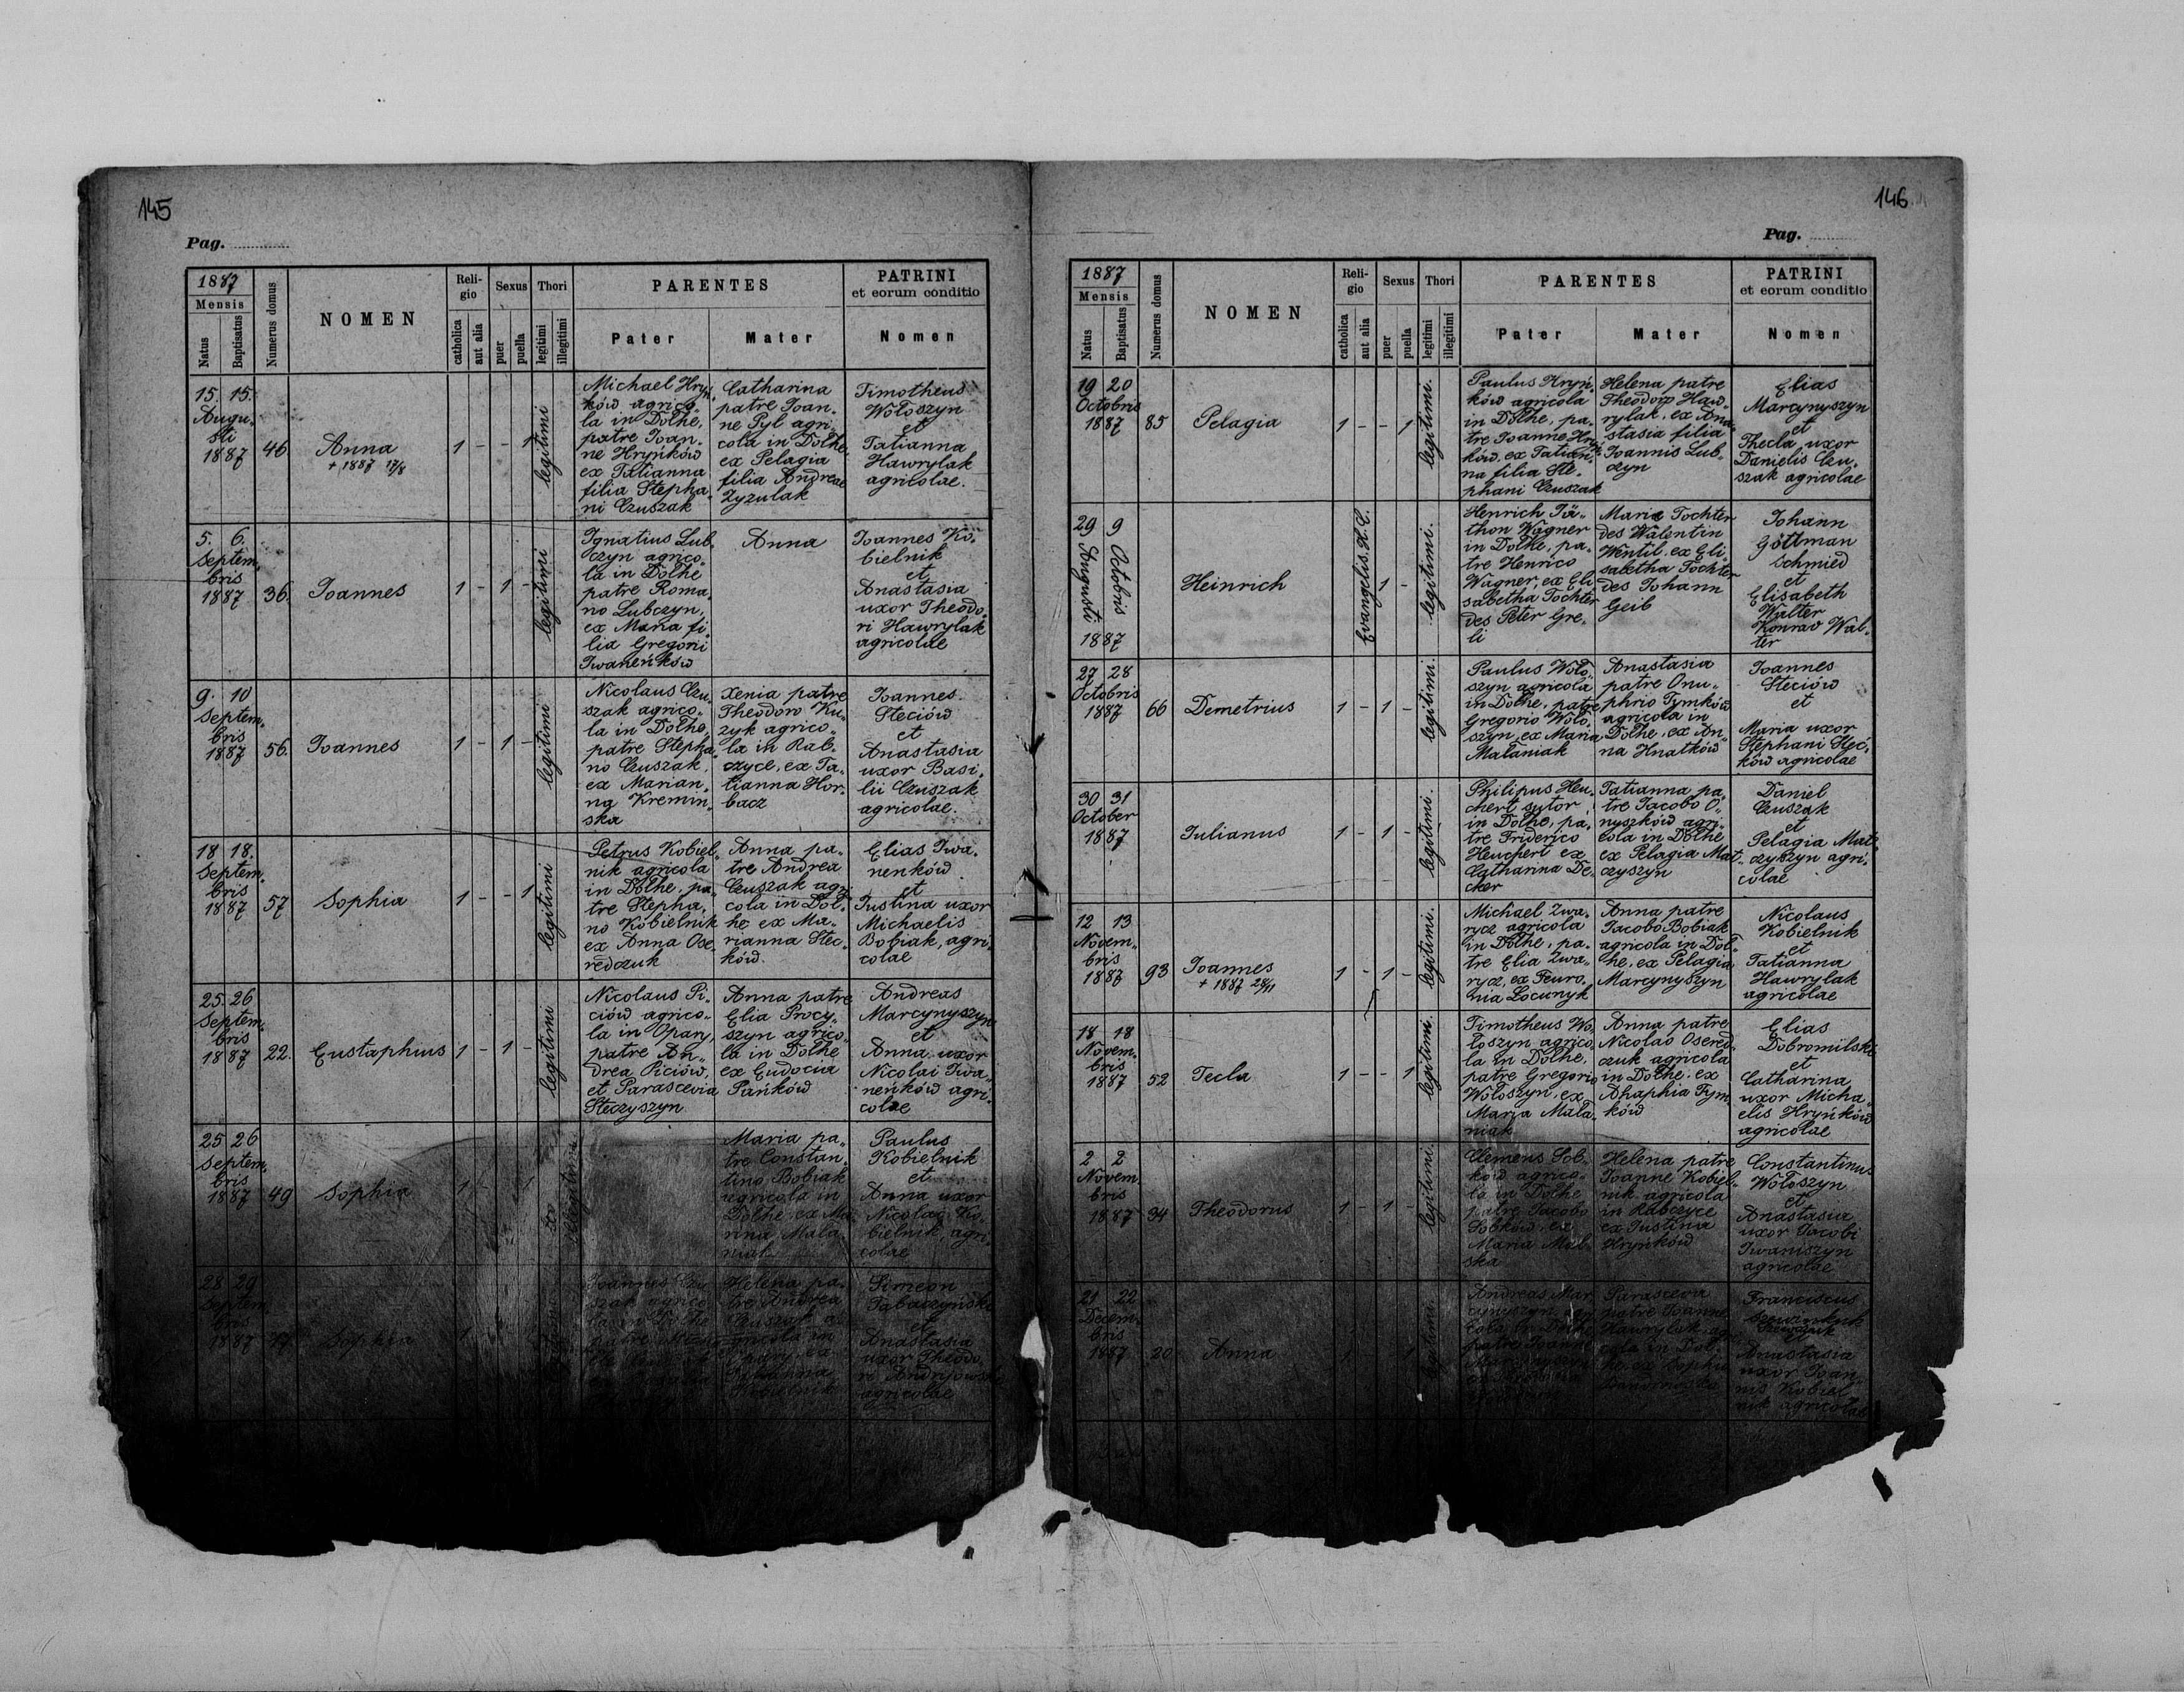 145
Pag.
1887
Mensis
Natus
Baptisatus
Numerus domus
NOMEN
Reli-
gio
catholica
aut alia
Sexus
puer
puella
Thori
legitimi
illegitimi
PARENTES
Pater
Mater
PATRINI
et eorum conditio
Nomen
15. 15.
Augu.
sti
1887
46
Anna
+ 1887 17/8
1 - - 1
legitimi
Michael Hryń.
ków agrico.
la in Dołhe,
patre Ioan.
ne Hryńków
ex Tatianna
filia Stepha.
ni Czuszak
Catharina
patre Ioan.
ne Pyl agri.
cola in Dołhe.
ex Pelagia
filia Andreae
Zyzulak
Timotheus
Wołoszyn
et
Tatianna
Hawrylak
agricolae.
5. 6.
Septem.
bris
1887
36.
Ioannes
1 - 1 -
legitimi
Ignatius Lub.
czyn agrico.
la in Dołhe
patre Roma.
no Lubczyn,
ex Maria fi.
lia Gregorii
Iwaneńków
Anna
Ioannes Ko.
bielnik
et
Anastasia
uxor Theodo.
ri Hawrylak
agricolae
9. 10
Septem.
bris
1887
56.
Ioannes
1 - 1 -
legitimi
Nicolaus Czu.
szak agrico.
la in Dołhe,
patre Stepha.
no Czuszak,
ex Marian.
na Kremin.
ska
Xenia patre
Theodoro Ku.
zyk agrico.
la in Rab.
czyce, ex Ta.
tianna Hor.
bacz
Ioannes
Steciów
et
Anastasia
uxor Basi.
lii Czuszak
agricolae.
18 18.
Septem.
bris
1887
57
Sophia
1 - - 1
legitimi
Petrus Kobiel.
nik agricola
in Dołhe, pa.
tre Stepha.
no Kobielnik
ex Anna Ose.
redczuk
Anna pa.
tre Andrea
Czuszak agri
cola in Dol.
he ex Ma.
rianna Stec.
ków.
Elias Iwa.
nenków.
et
Iustina uxor
Michaelis
Bobiak, agri.
colae
25 26
Septem.
bris
1887
22.
Eustaphius
1 - 1 -
legitimi
Nicolaus Pi.
ciów agrico.
la in Opary,
patre An.
drea Piciów,
et Parascevia
Steczyszyn
Anna patre
Elia Procy.
szyn agrico.
la in Dołhe
ex Eudocia
Pańków
Andreas
Marcynyszyn
et
Anna uxor
Nicolai Iwa.
neńków agri.
colae
25 26
Septem.
bris
1887
49
Sophia
1 - 1
illegitimi
Maria pa.
tre Constan.
tino Bobiak
agricola in
Dołhe ex Ma.
rina Mala.
niak
Paulus
Kobielnik
et
Anna uxor
Nicolai Ko.
bielnik, agri.
colae
28 29
Septem.
bris
1887
Sophia
Ioannes Czu
szak agrico
la in Dołhe
patre
Helena pa.
tre Andrea
agricola in
Opary ex
Kobielnik
Simeon
et
Anastasia
uxor Theodo.
ri
agricolae
146
Pag.
1887
Mensis
Natus
Baptisatus
Numerus domus
NOMEN
Reli-
gio
catholica
aut alia
Sexus
puer
puella
Thori
legitimi
illegitimi
PARENTES
Pater
Mater
PATRINI
et eorum conditio
Nomen
19 20
Octobris
1887
85
Pelagia
1 - - 1
legitimi.
Paulus Hryń.
ków agricola
in Dołhe, pa.
tre Ioanne Hryń.
ków, ex Tatian.
na filia Ste.
phani Czuszak
Helena patre
Theodoro Haw.
rylak, ex Ana.
stasia filia
Ioannis Lub.
czyn
Elias
Marcynyszyn
et
Thecla, uxor
Danielis Czu.
szak agricolae
29 9
Augusti Octobris
1887
Heinrich
Evangelis. H.C.
1 -
legitimi.
Henrich Jä.
thon Wagner
in Dołhe, pa.
tre Henrico
Wagner, ex Eli
sabetha Tochter
des Peter Gre.
li
Marie Tochter
des Walentin
Wentil, ex Eli.
sabetha Tochter
des Johann
Geib
Johann
Göttman
Schmied
et
Elisabeth
Walter
Konrad Wal.
ter
27 28
Octobris
1887
66
Demetrius
1 - 1 -
legitimi.
Paulus Woło.
szyn agricola
in Dołhe, patre
Gregorio Woło.
szyn, ex Maria
Malaniak
Anastasia
patre Onu.
phrio Tymków
agricola in
Dołhe, ex An.
na Hnatków
Ioannes
Steciów
et
Maria uxor
Stephani Steć.
ków agricolae
30 31
October
1887
Iulianus
1 - 1 -
legitimi.
Philipus Heu.
chert sutor
in Dołhe, pa.
tre Friderico
Heuchert ex
Catharina De.
cker
Tatianna pa.
tre Iacobo O.
nyszków agri.
cola in Dołhe
ex Pelagia Mat.
czyszyn
Daniel
Czuszak
et
Pelagia Mat.
czyszyn agri.
colae
12 13
Novem.
bris
1887
93
Ioannes
+ 1887 28/11
1 - 1 -
legitimi.
Michael Zwa.
rycz agricola
in Dołhe, pa.
tre Elia Zwa.
rycz, ex Feuro.
nia Locunyk
Anna patre
Iacobo Bobiak
agricola in Dol.
he, ex Pelagia
Marcynyszyn
Nicolaus
Kobielnik
et
Tatianna
Hawrylak
agricolae
18 18
Novem.
bris
1887
52
Tecla
1 - - 1
legitimi.
Timotheus Wo.
łoszyn agrico.
la in Dołhe,
patre Gregorio
Wołoszyn, ex
Maria Mala.
niak
Anna patre
Nicolao Osered.
czuk agricola
in Dołhe, ex
Ahaphia Tym.
ków
Elias
Dobromilski
et
Catharina
uxor Micha.
elis Hryńków
agricolae
2 2
Novem.
bris
1887
94
Theodorus
1 - 1 -
legitimi
Clemens Sob.
ków agrico.
la in Dołhe
patre Iacobo
Sobków, ex
Maria Mal.
ska
Helena patre
Ioanne Kobiel.
nik agricola
in Rabczyce
ex Iustina
Hryńków
Constantinus
Wołoszyn
et
Anastasia
uxor Iacobi
Iwaniszyn
agricolae
21 22
Decem.
bris
1887
20
Anna
1 - - 1
legitimi
Andreas Mar
cynyszyn agri
cola in Dołhe
patre Ioanne
Parasceva
patre Ioanne
Hawrylak agri
cola in Dol.
he, ex Sophia
Franciscus
Anastasia
uxor Ioan.
nis Kobiel.
nik agricolae